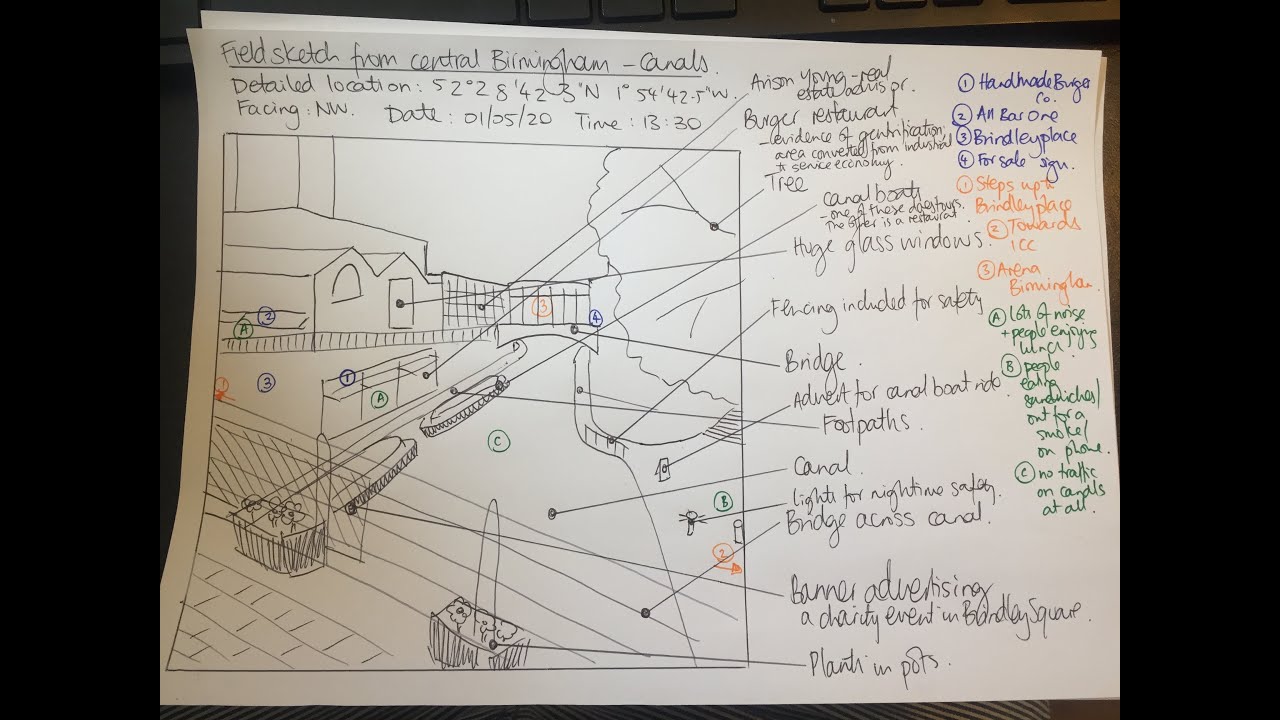 Field sketch from central Birmingham - Canals.
Detailed location: 52°28'42.3"N 1°54'42.5"W.
Facing: NW. Date: 01/05/20 Time: 13:30
Avison Young - real
estate advisor.
Burger restaurant
- evidence of gentrification,
area converted from industrial
to service economy.
Tree
Canal boats
- one of these does tours.
The other is a restaurant.
Huge glass windows.
Fencing included for safety
Bridge.
Advert for canal boat ride
Footpaths.
Canal.
Lights for nightime safety.
Bridge across canal.
Banner advertising
a charity event in Brindley Square.
Plants in pots.
1 Handmade Burger
Co.
2 All Bar One
3 Brindleyplace
4 For sale sign.
1 Steps up to
Brindleyplace
2 Towards
ICC
3 Arena
Birmingham.
A lots of noise
+ people enjoying
lunch
B people
eating
sandwiches/
out for a
smoke/
on phone.
C no traffic
on canals
at all.
2
A
3
4
1
3
1
A
C
B
2